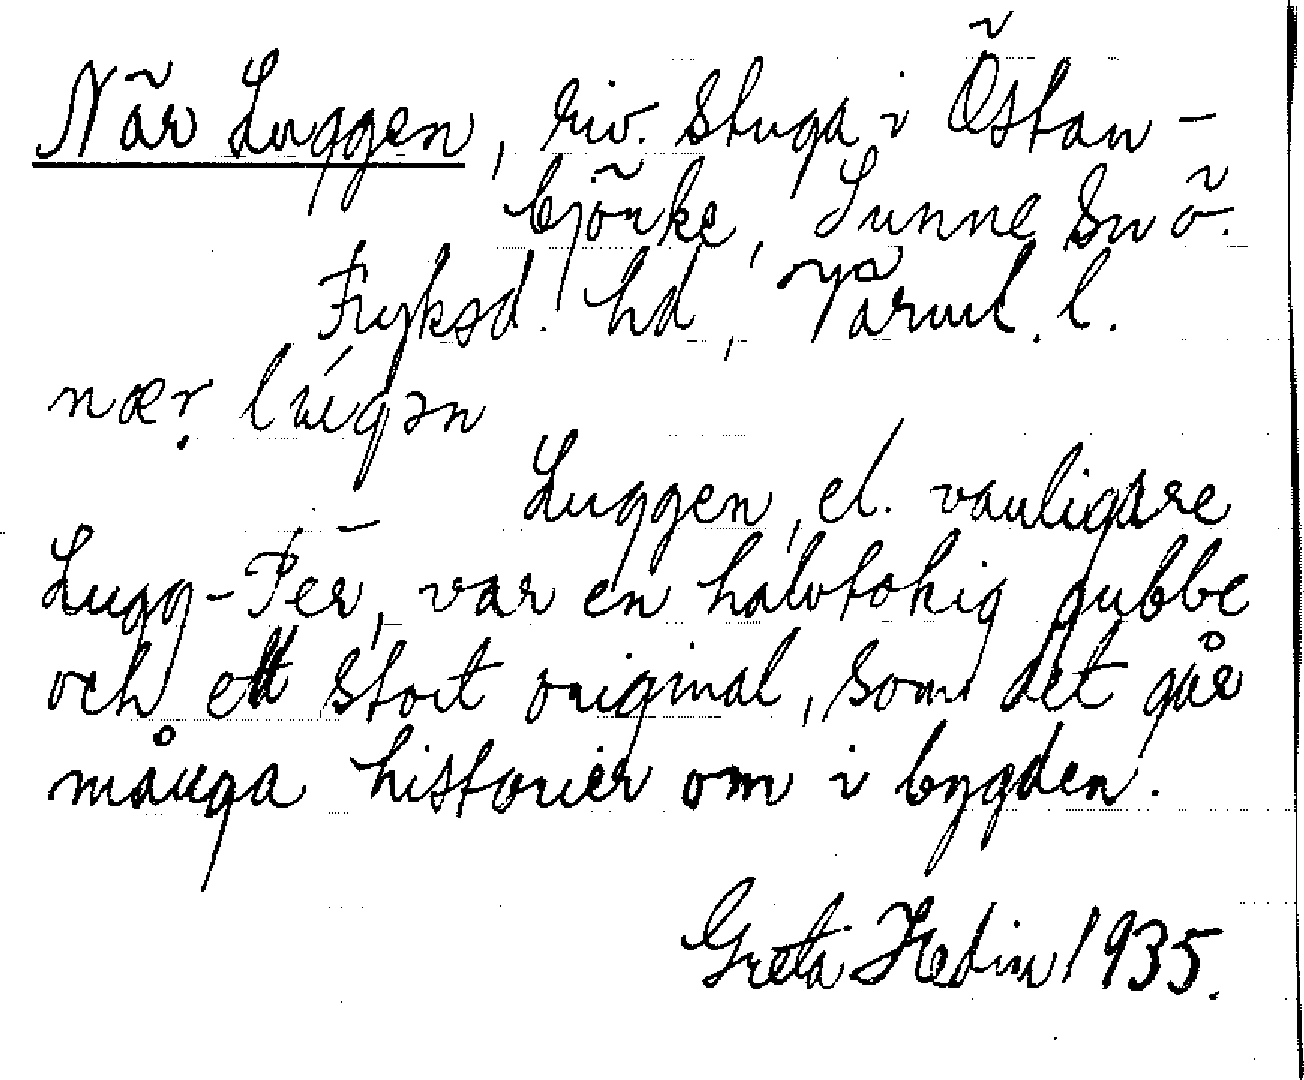 När Luggen, riv. stuga i Östan-
björke, Sunne sn ö.
Fryksd. hd, Värml. l.
nær lúgən
Luggen, el. vanligare
Lugg-Pēr, var en halvtokig gubbe
och ett stort original, som det går
många historier om i bygden.
Greta Hedin 1935.